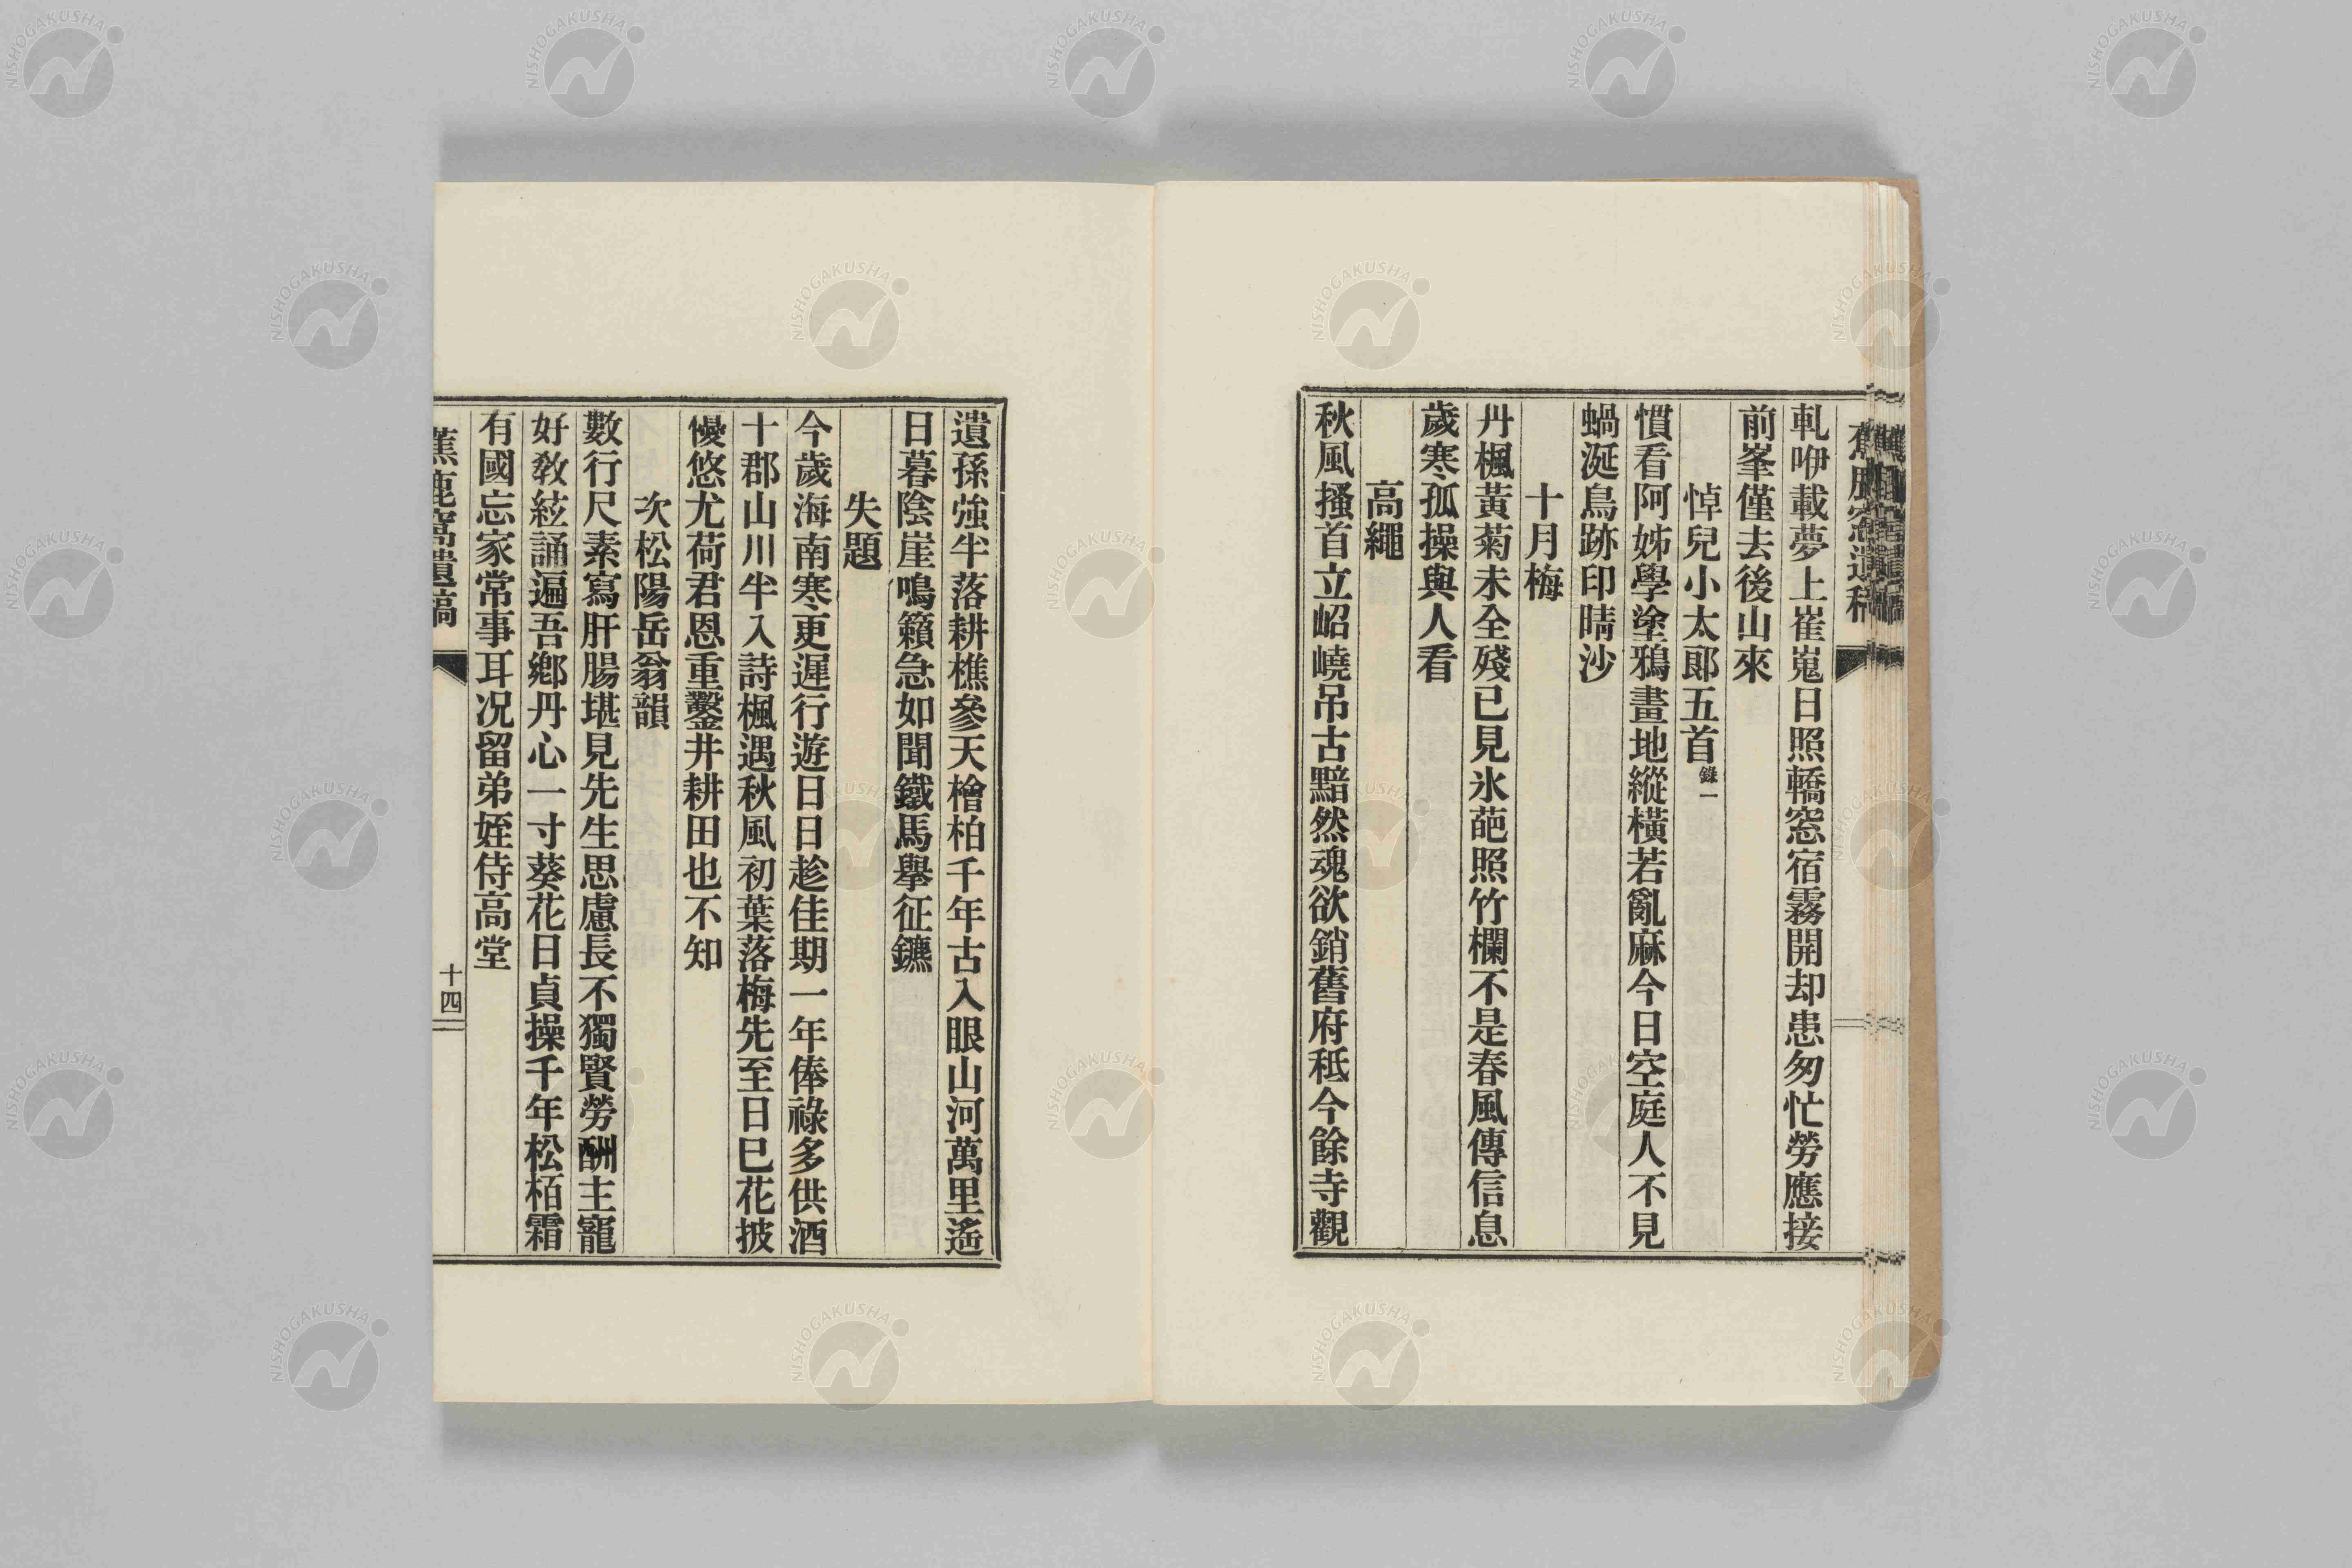 軋咿載夢上崔嵬日照轎窓宿霧開却患匆忙勞應接
前峯僅去後山來
悼兒小太郎五首錄一
慣看阿姊學塗鴉畫地縱橫若亂麻今日空庭人不見
蝸涎鳥跡印晴沙
十月梅
丹楓黃菊未全殘已見氷葩照竹欄不是春風傳信息
歲寒孤操與人看
高繩
秋風搔首立岹嶢吊古黯然魂欲銷舊府秪今餘寺觀
遺孫強半落耕樵參天檜柏千年古入眼山河萬里遙
日暮陰崖鳴籟急如聞鐵馬擧征鑣
失題
今歲海南寒更遲行遊日日趁佳期一年俸祿多供酒
十郡山川半入詩楓遇秋風初葉落梅先至日巳花披
慢悠尤荷君恩重鑿井耕田也不知
次松陽岳翁韻
數行尺素寫肝腸堪見先生思慮長不獨賢勞酬主寵
好敎絃誦遍吾鄕丹心一寸葵花日貞操千年松栢霜
有國忘家常事耳况留弟姪侍高堂
蕉鹿窩遺稿
十四
NISHOGAKUSHA